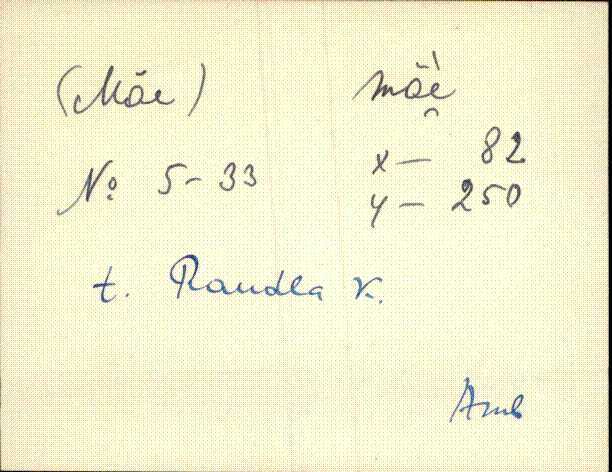 (Mäe) mäè̯
№ 5-33 x — 82
y — 250
t. Raudla k.
Amb